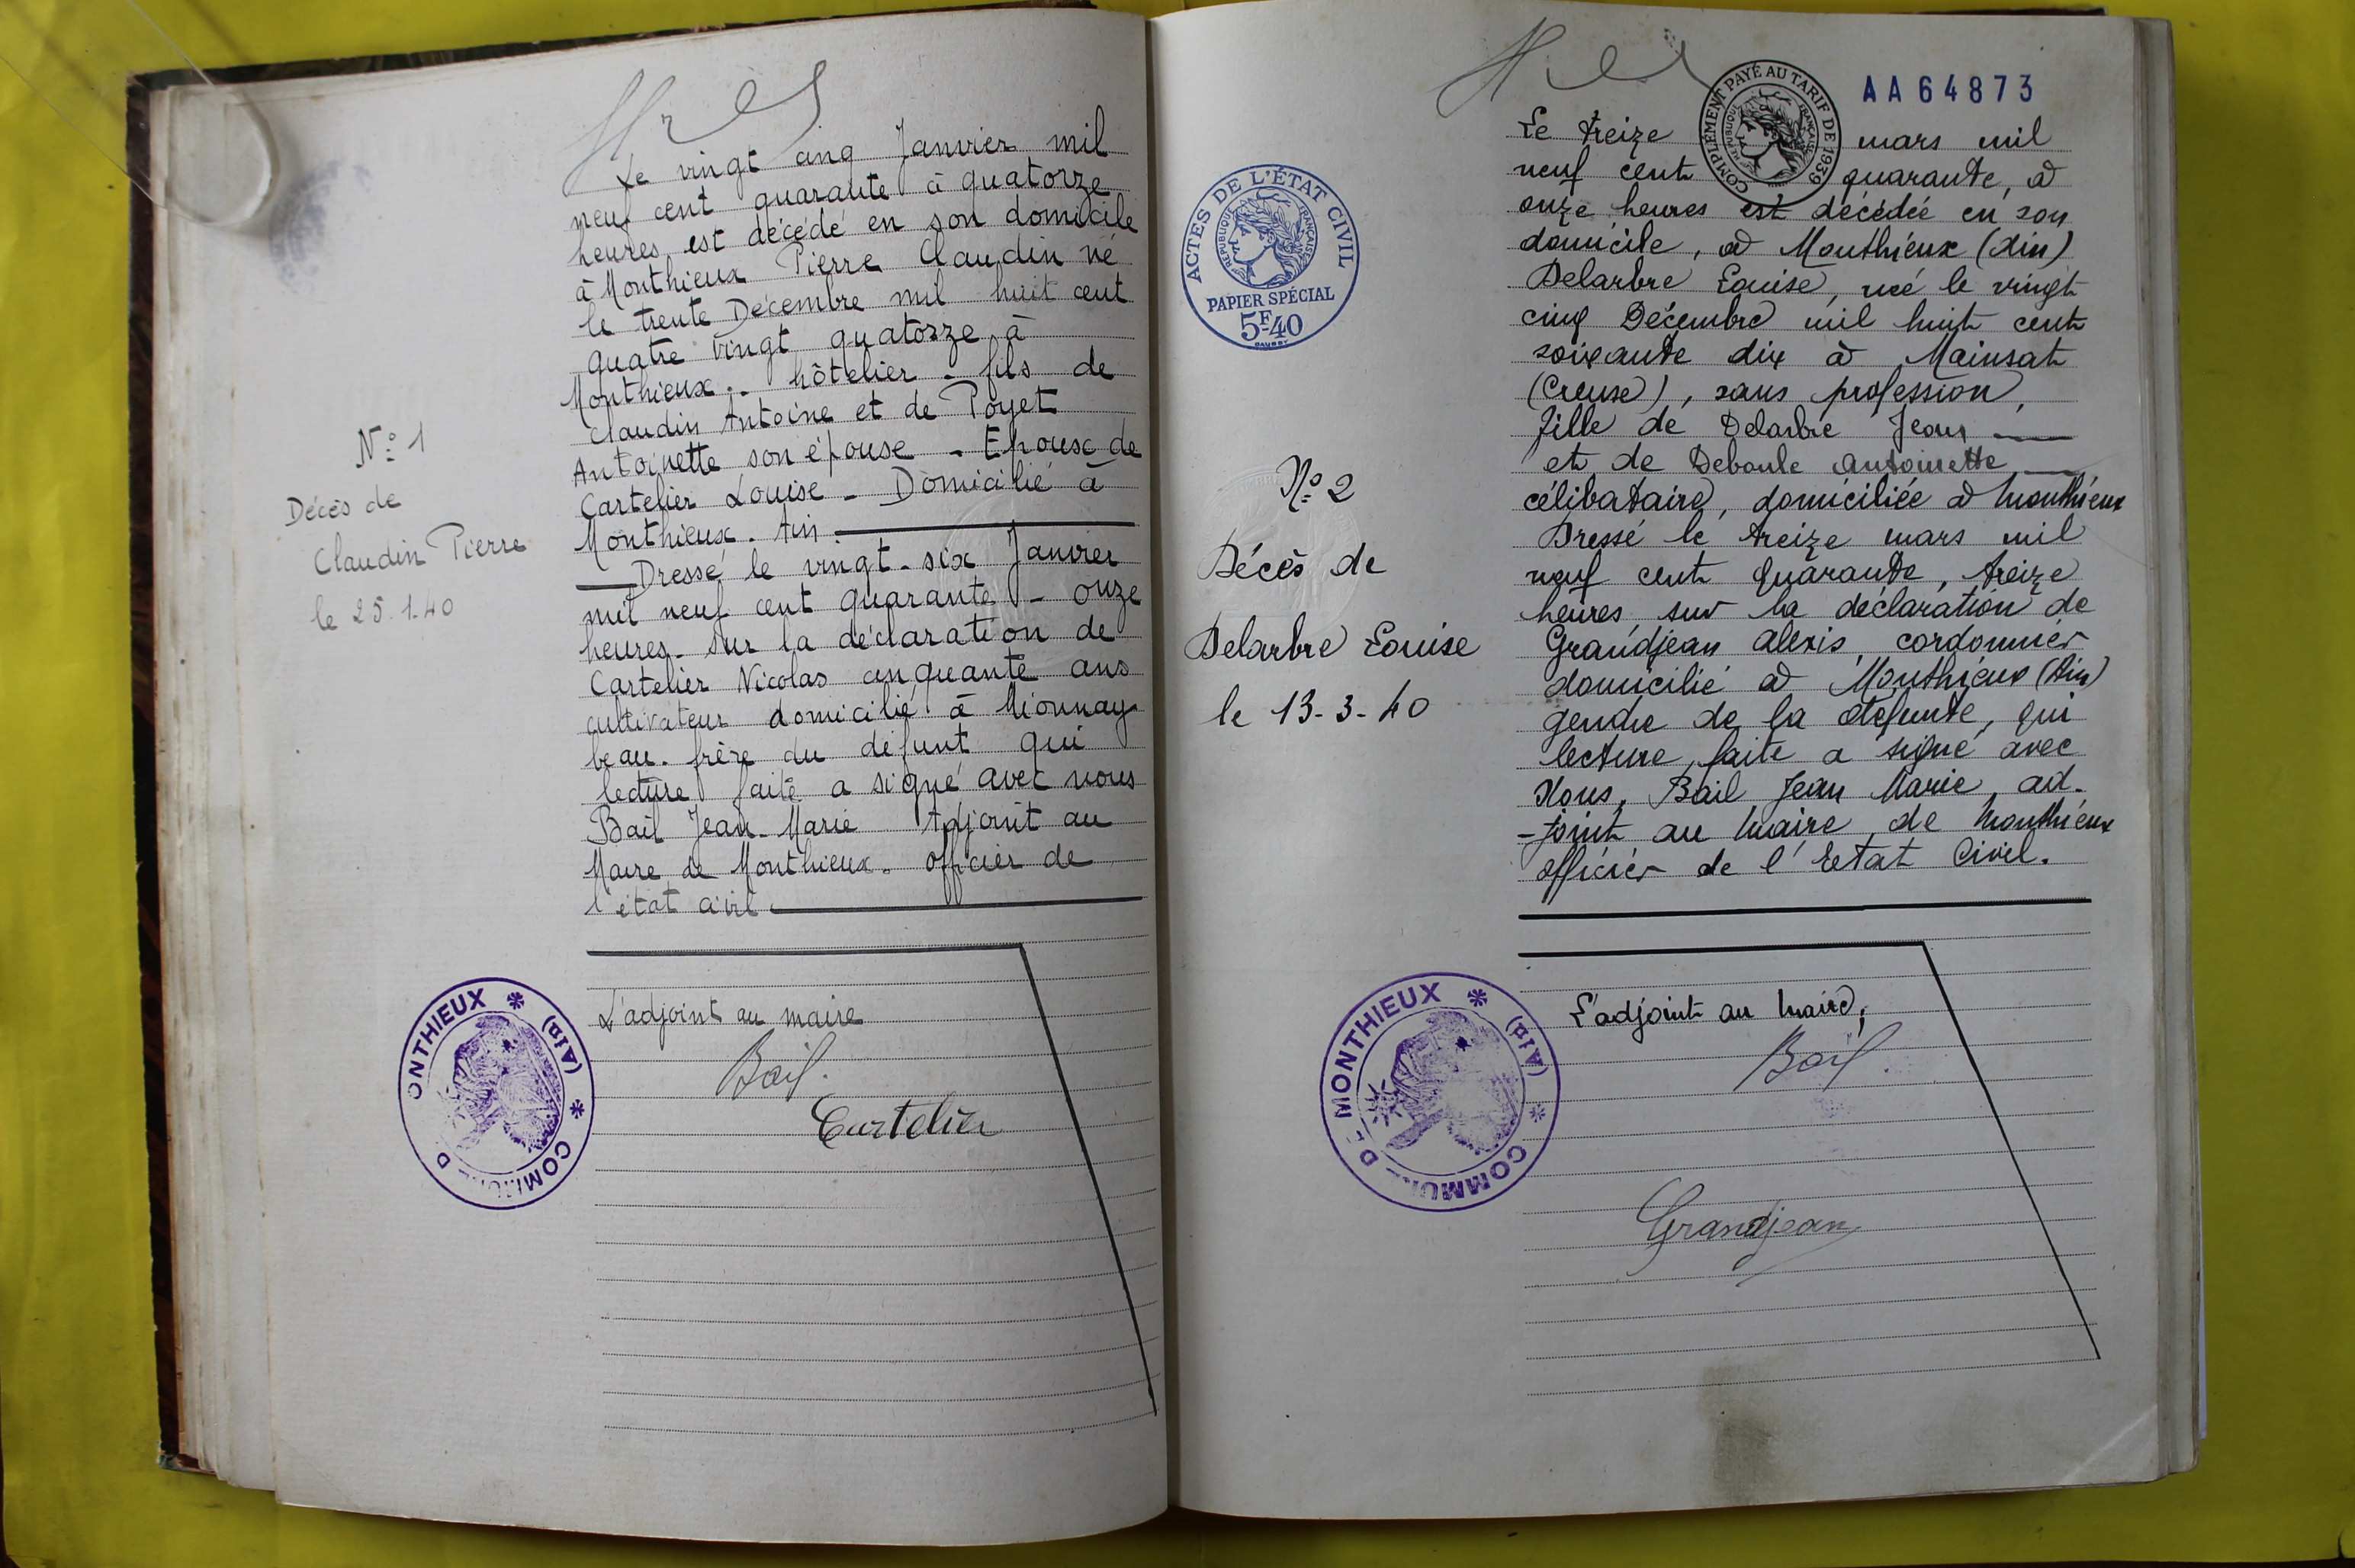 N° 1
Décès de
Claudin Pierre
le 25.1.40
Le vingt cinq Janvier mil
neuf cent quarante à quatorze
heures est décédé en son domicile
à Monthieux Pierre Claudin né
le trente Décembre mil huit cent
quatre vingt quatorze à
Monthieux - hôtelier - fils de
Claudin Antoine et de Poyet
Antoinette son épouse - Epoux de
Cartelier Louise - Domicilié à
Monthieux. Ain
Dressé le vingt-six Janvier
mil neuf cent quarante - onze
heures - sur la déclaration de
Cartelier Nicolas cinquante ans
cultivateur domicilié à Mionnay
beau-frère du défunt qui
lecture faite a signé avec nous
Bail Jean-Marie Adjoint au
Maire de Monthieux. Officier de
l'état civil
L'adjoint au maire
Bail.
Curtelier
COMMUNE D ONTHIEUX * (AIN) *
AA64873
COMPLÉMENT PAYÉ AU TARIF DE 1939
REPUBLIQUE FRANÇAISE
ACTES DE L'ÉTAT CIVIL
REPUBLIQUE FRANÇAISE
PAPIER SPÉCIAL
5F40
N° 2
Décès de
Delarbre Louise
le 13-3-40
Le treize mars mil
neuf cent quarante, à
onze heures est décédée en son
domicile, à Monthieux (Ain)
Delarbre Louise, née le vingt
cinq Décembre mil huit cent
soixante dix à Mainsat
(Creuse), sans profession,
fille de Delarbre Jean
et de Deboule Antoinette
célibataire, domiciliée à Monthieux
Dressé le treize mars mil
neuf cent quarante, treize
heures, sur la déclaration de
Grandjean Alexis, cordonnier
domicilié à Monthieux (Ain)
gendre de la défunte, qui
lecture faite a signé avec
Nous, Bail Jean Marie, ad-
-joint au Maire de Monthieux
officier de l'Etat Civil.
L'adjoint au Maire,
Bail.
Grandjean
COMMUNE DE MONTHIEUX * (AIN) *